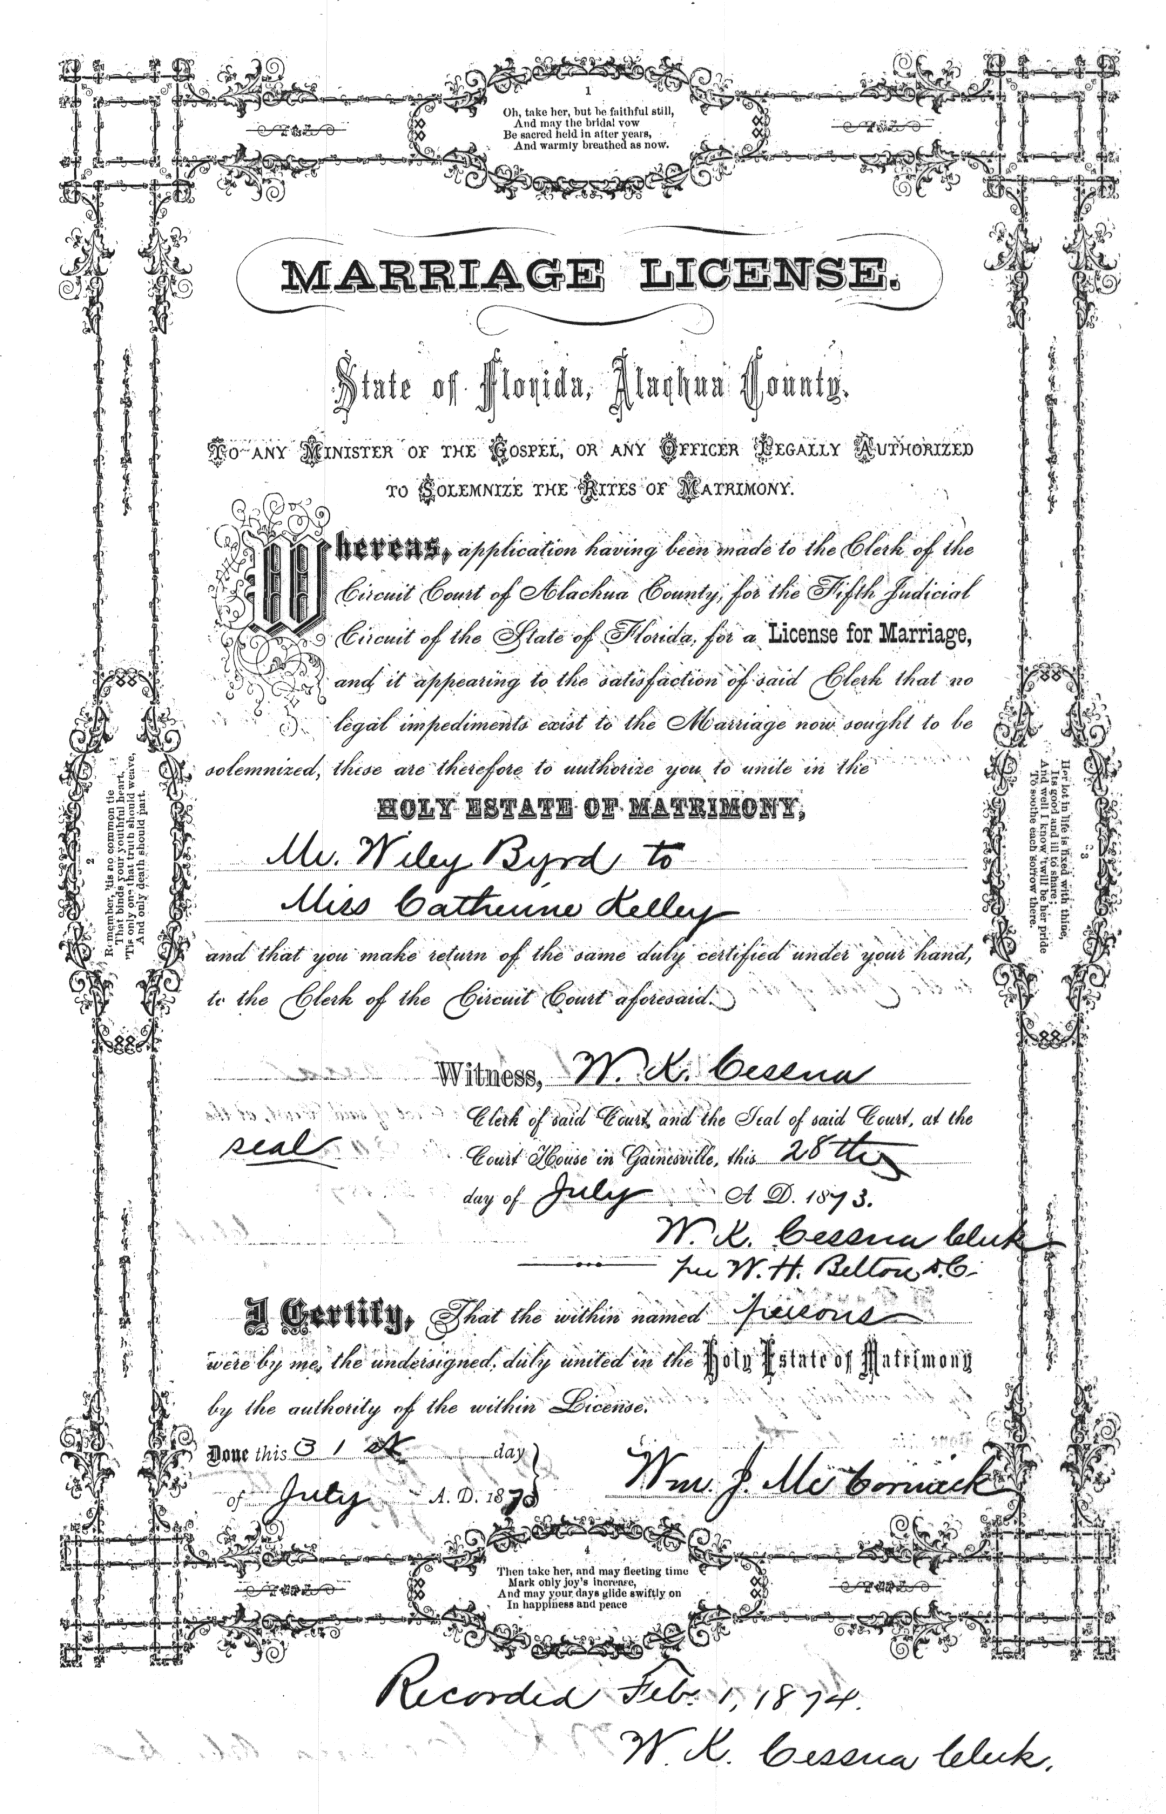 1
Oh, take her, but be faithful still,
And may the bridal vow
Be sacred held in after years,
And warmly breathed as now.
MARRIAGE LICENSE.
State of Florida, Alachua County.
TO ANY MINISTER OF THE GOSPEL, OR ANY OFFICER LEGALLY AUTHORIZED
TO SOLEMNIZE THE RITES OF MATRIMONY.
Whereas, application having been made to the Clerk of the
Circuit Court of Alachua County, for the Fifth Judicial
Circuit of the State of Florida, for a License for Marriage,
and it appearing to the satisfaction of said Clerk that no
legal impediments exist to the Marriage now sought to be
solemnized, these are therefore to authorize you to unite in the
HOLY ESTATE OF MATRIMONY,
Mr. Wiley Byrd to
Miss Catherine Kelley
and that you make return of the same duly certified under your hand,
to the Clerk of the Circuit Court aforesaid.
2
Remember, 'tis no common tie
That binds your youthful heart,
'Tis only one that truth should weave,
And only death should part.
3
Her lot in life is fixed with thine,
Its good and ill to share;
And well I know 'twill be her pride
To soothe each sorrow there.
Witness, W. K. Cessna
Clerk of said Court, and the Seal of said Court, at the
seal
Court House in Gainesville, this 28th
day of July A. D. 1873.
W. K. Cessna Clerk
per W. H. Belton D.C.
I Certify, That the within named persons
were by me, the undersigned, duly united in the Holy Estate of Matrimony
by the authority of the within License.
Done this 31st day
of July A. D. 1873
Wm. J. McCormick
4
Then take her, and may fleeting time
Mark only joy's increase,
And may your days glide swiftly on
In happiness and peace
Recorded Feb. 1, 1874.
W. K. Cessna Clerk.